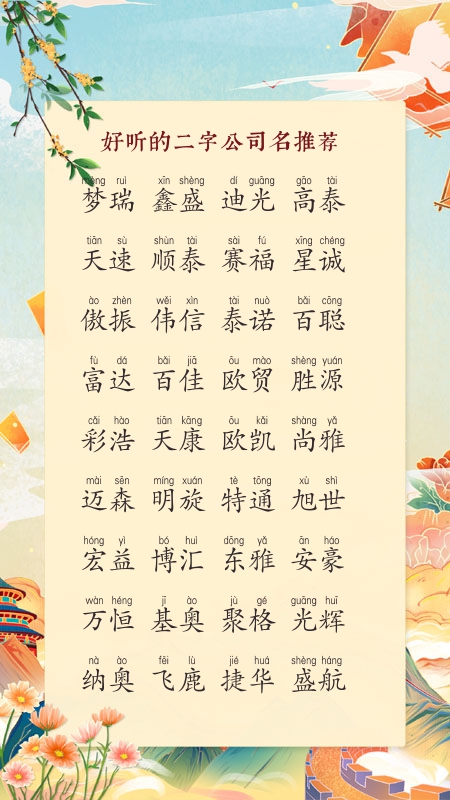 好听的二字公司名推荐
mèng ruì xīn shèng dí guāng gāo tài
梦瑞 鑫盛 迪光 高泰
tiān sù shùn tài sài fú xīng chéng
天速 顺泰 赛福 星诚
ào zhèn wěi xìn tài nuò bǎi cōng
傲振 伟信 泰诺 百聪
fù dá bǎi jiā ōu mào shèng yuán
富达 百佳 欧贸 胜源
cǎi hào tiān kāng ōu kǎi shàng yǎ
彩浩 天康 欧凯 尚雅
mài sēn míng xuán tè tōng xù shì
迈森 明旋 特通 旭世
hóng yì bó huì dōng yǎ ān háo
宏益 博汇 东雅 安豪
wàn héng jī ào jù gé guāng huī
万恒 基奥 聚格 光辉
nà ào fēi lù jié huá shèng háng
纳奥 飞鹿 捷华 盛航